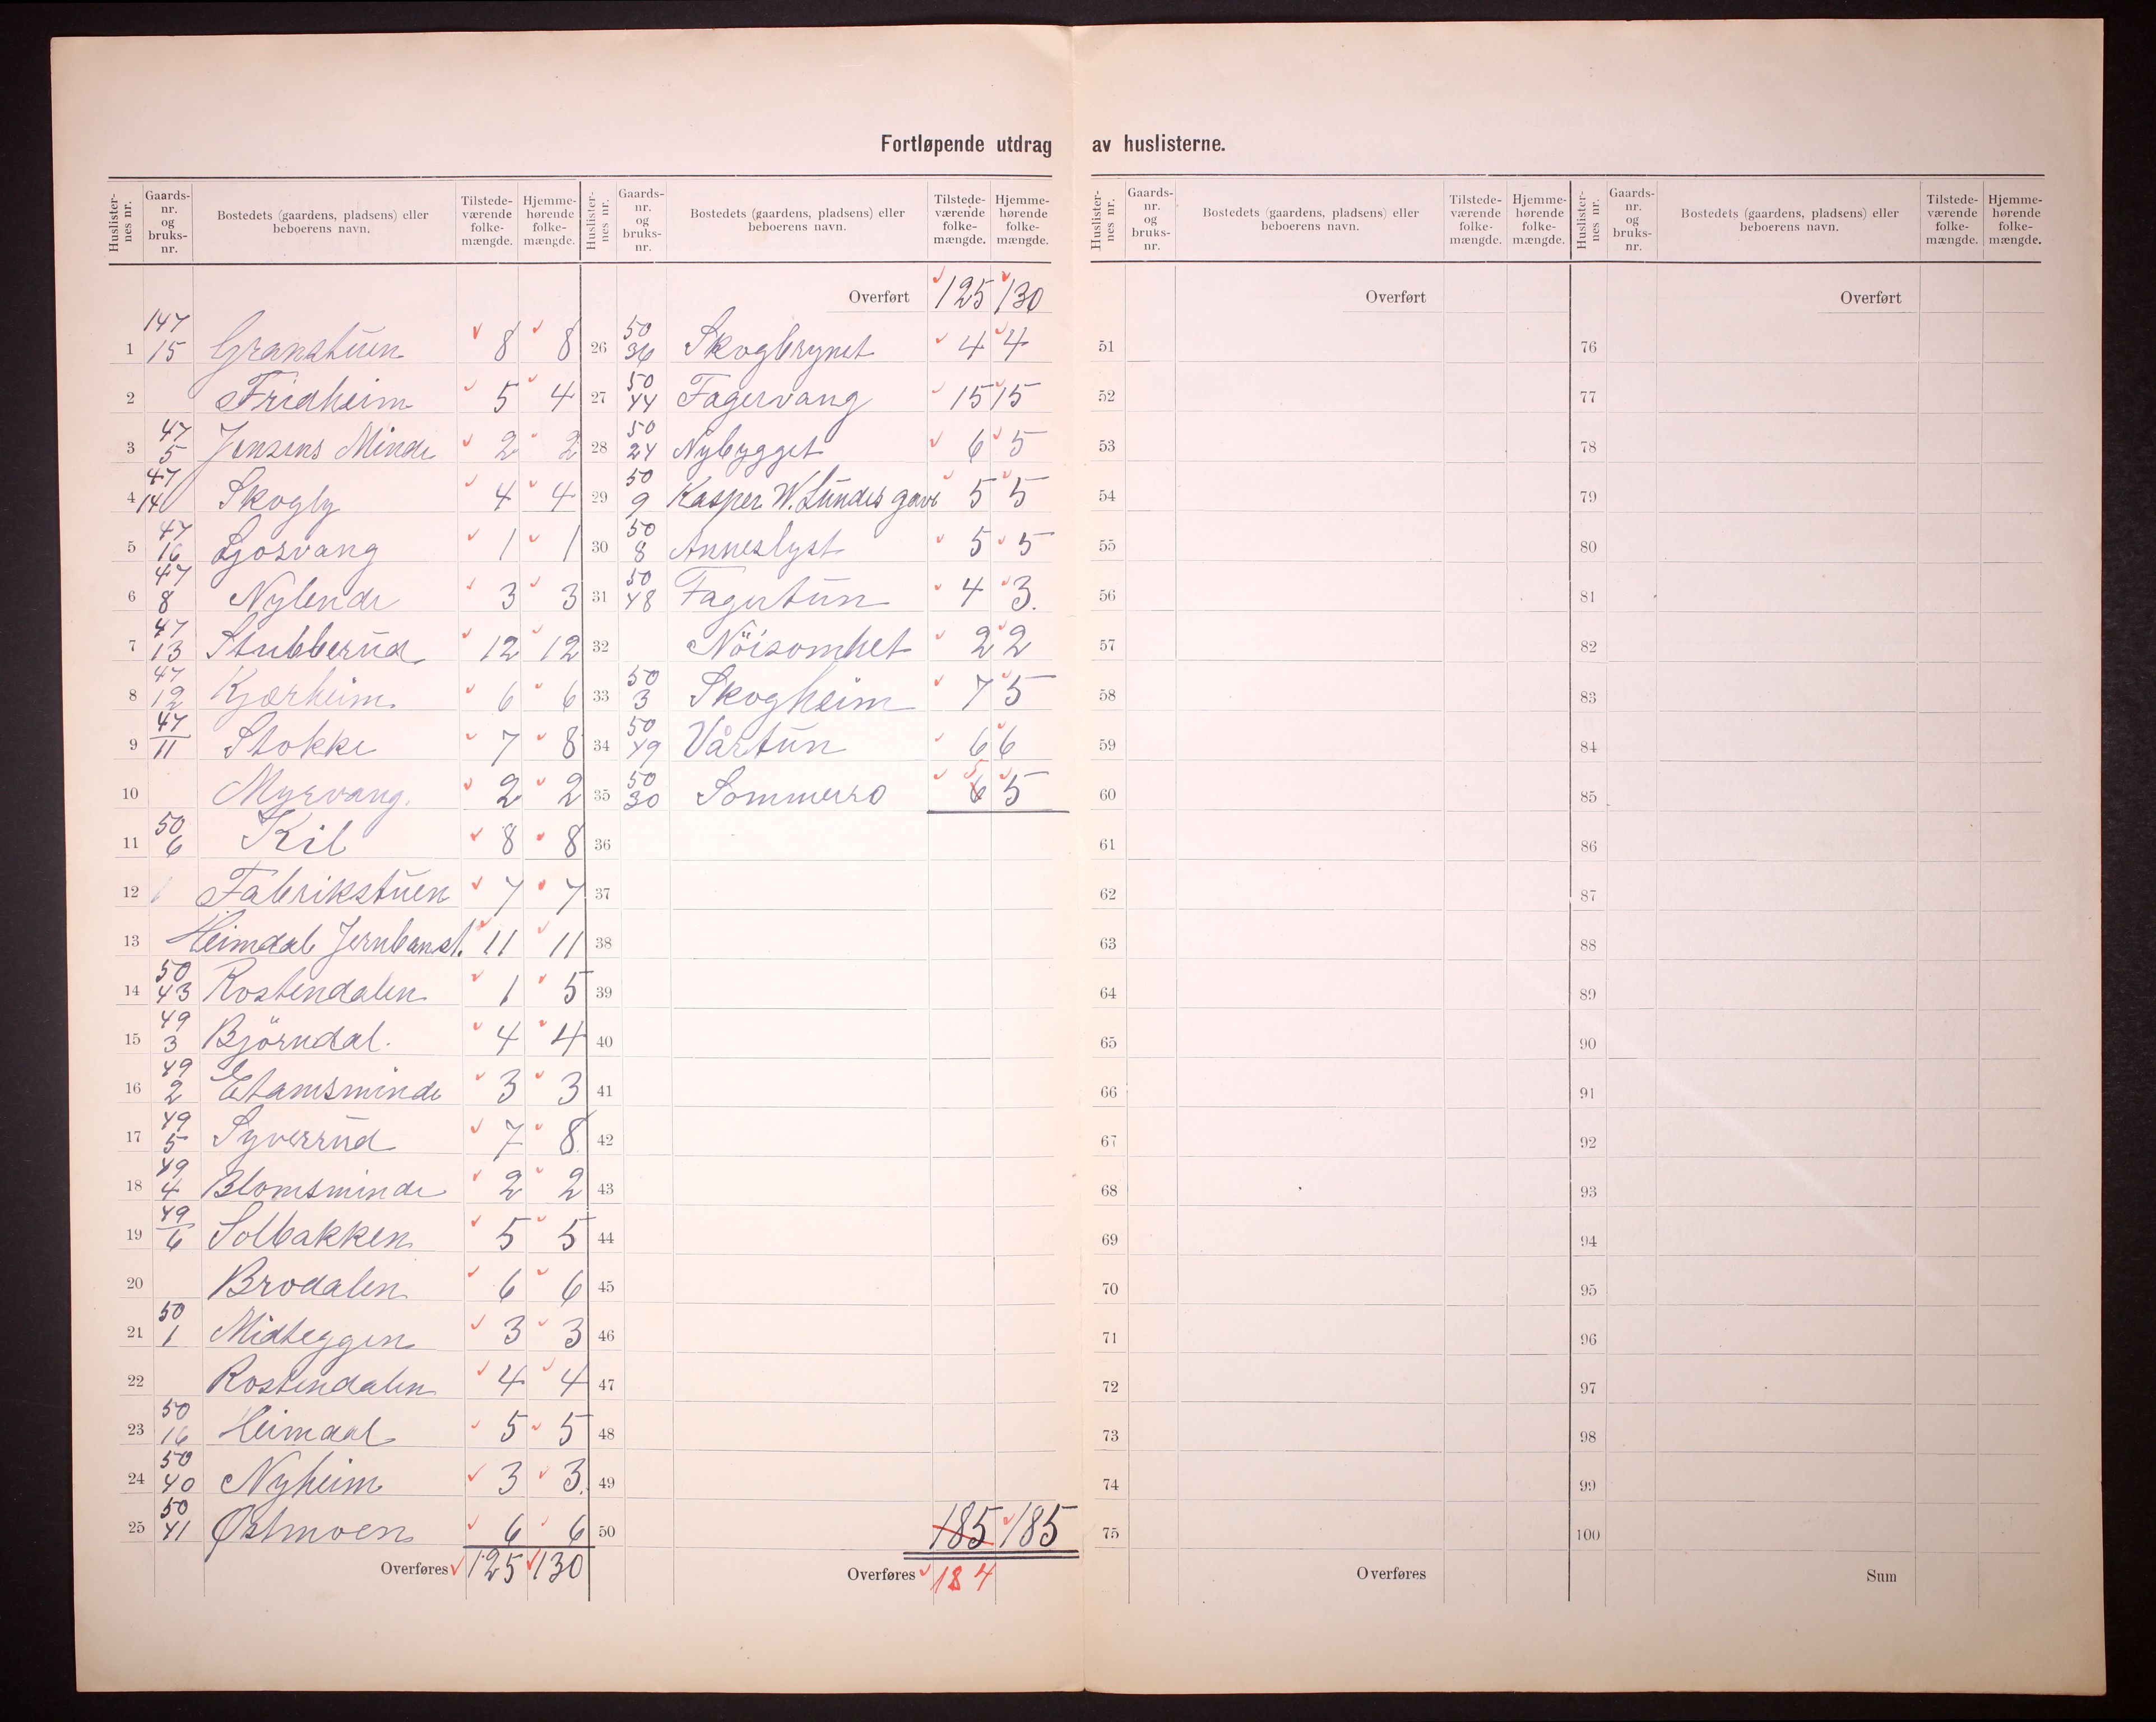 Fortløpende utdrag av huslisterne.
Huslisternes nr. Gaards-nr. og bruks-nr. Bostedets (gaardens, pladsens) eller beboerens navn. Tilstedeværende folkemængde. Hjemmehørende folkemængde.
1 147 15 Granstuen 8 8
2 Fridheim 5 4
3 47 5 Jensens Minde 2 2
4 47 14 Skogly 4 4
5 47 16 Ljosvang 1 1
6 47 8 Nylende 3 3
7 47 13 Stubberud 12 12
8 47 12 Kjærheim 6 6
9 47 11 Stokke 7 8
10 Myrvang. 2 2
11 50 6 Kil 8 8
12 Fabrikstuen 7 7
13 Heimdal Jernbanst. 11 11
14 50 43 Rostendalen 1 5
15 49 3 Björndal. 4 4
16 49 2 3 3
17 49 5 Syverrud 7 8
18 49 4 Blomsminde 2 2
19 49 6 Solbakken 5 5
20 Brodalen 6 6
21 50 1 Midteggen 3 3
22 Rostendalen 4 4
23 50 16 Heimdal 5 5
24 50 40 Nyheim 3 3
25 50 41 Østmoen 6 6
Overføres 125 130
Huslisternes nr. Gaards-nr. og bruks-nr. Bostedets (gaardens, pladsens) eller beboerens navn. Tilstedeværende folkemængde. Hjemmehørende folkemængde.
Overført 125 130
26 50 36 Skogbrynet 4 4
27 50 44 Fagervang 15 15
28 50 24 Nybygget 6 5
29 50 9 Kasper W. Lundes gave 5 5
30 50 8 Anneslyst 5 5
31 50 48 Fagertun 4 3.
32 Nöisomhet 2 2
33 50 3 Skogheim 7 5
34 50 49 Vårtun 6 6
35 50 30 Sommerro 6 5 5
36
37
38
39
40
41
42
43
44
45
46
47
48
49
50 185 185
Overføres 184
Huslisternes nr. Gaards-nr. og bruks-nr. Bostedets (gaardens, pladsens) eller beboerens navn. Tilstedeværende folkemængde. Hjemmehørende folkemængde.
Overført
51
52
53
54
55
56
57
58
59
60
61
62
63
64
65
66
67
68
69
70
71
72
73
74
75
Overføres
Huslisternes nr. Gaards-nr. og bruks-nr. Bostedets (gaardens, pladsens) eller beboerens navn. Tilstedeværende folkemængde. Hjemmehørende folkemængde.
Overført
76
77
78
79
80
81
82
83
84
85
86
87
88
89
90
91
92
93
94
95
96
97
98
99
100
Sum